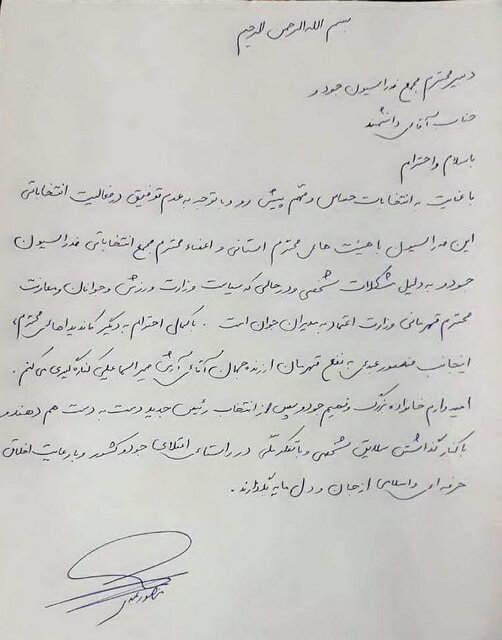 بسم الله الرحمن الرحیم
دبیر محترم مجمع فدراسیون جودو
جناب آقای دانشمند
باسلام و احترام
با عنایت به انتخابات حساس و مهم پیش رو و با توجه به عدم توفیق در فعالیت انتخاباتی
این فدراسیون با هیئت های محترم استانی و اعضاء محترم مجمع انتخاباتی فدراسیون
جودو به دلیل مشکلات شخصی و در حالی که سیاست وزارت ورزش و جوانان و معاونت
محترم قهرمانی وزارت اعتماد به مدیران جوان است . با کمال احترام به دیگر کاندیداهای محترم،
اینجانب منصور عبدی به نفع قهرمان ارزنده جهان آقای آرش میراسماعیلی کناره گیری می کنم .
امیدوارم خانواده بزرگ و نجیم جودو پس از انتخاب رئیس جدید دست به دست هم دهند و
با کنار گذاشتن سلایق شخصی و با تفکر ملی در راستای اعتلای جودو کشور و با رعایت اخلاق
حرفه ای و اسلامی از جان و دل مایه بگذارند .
منصور عبدی